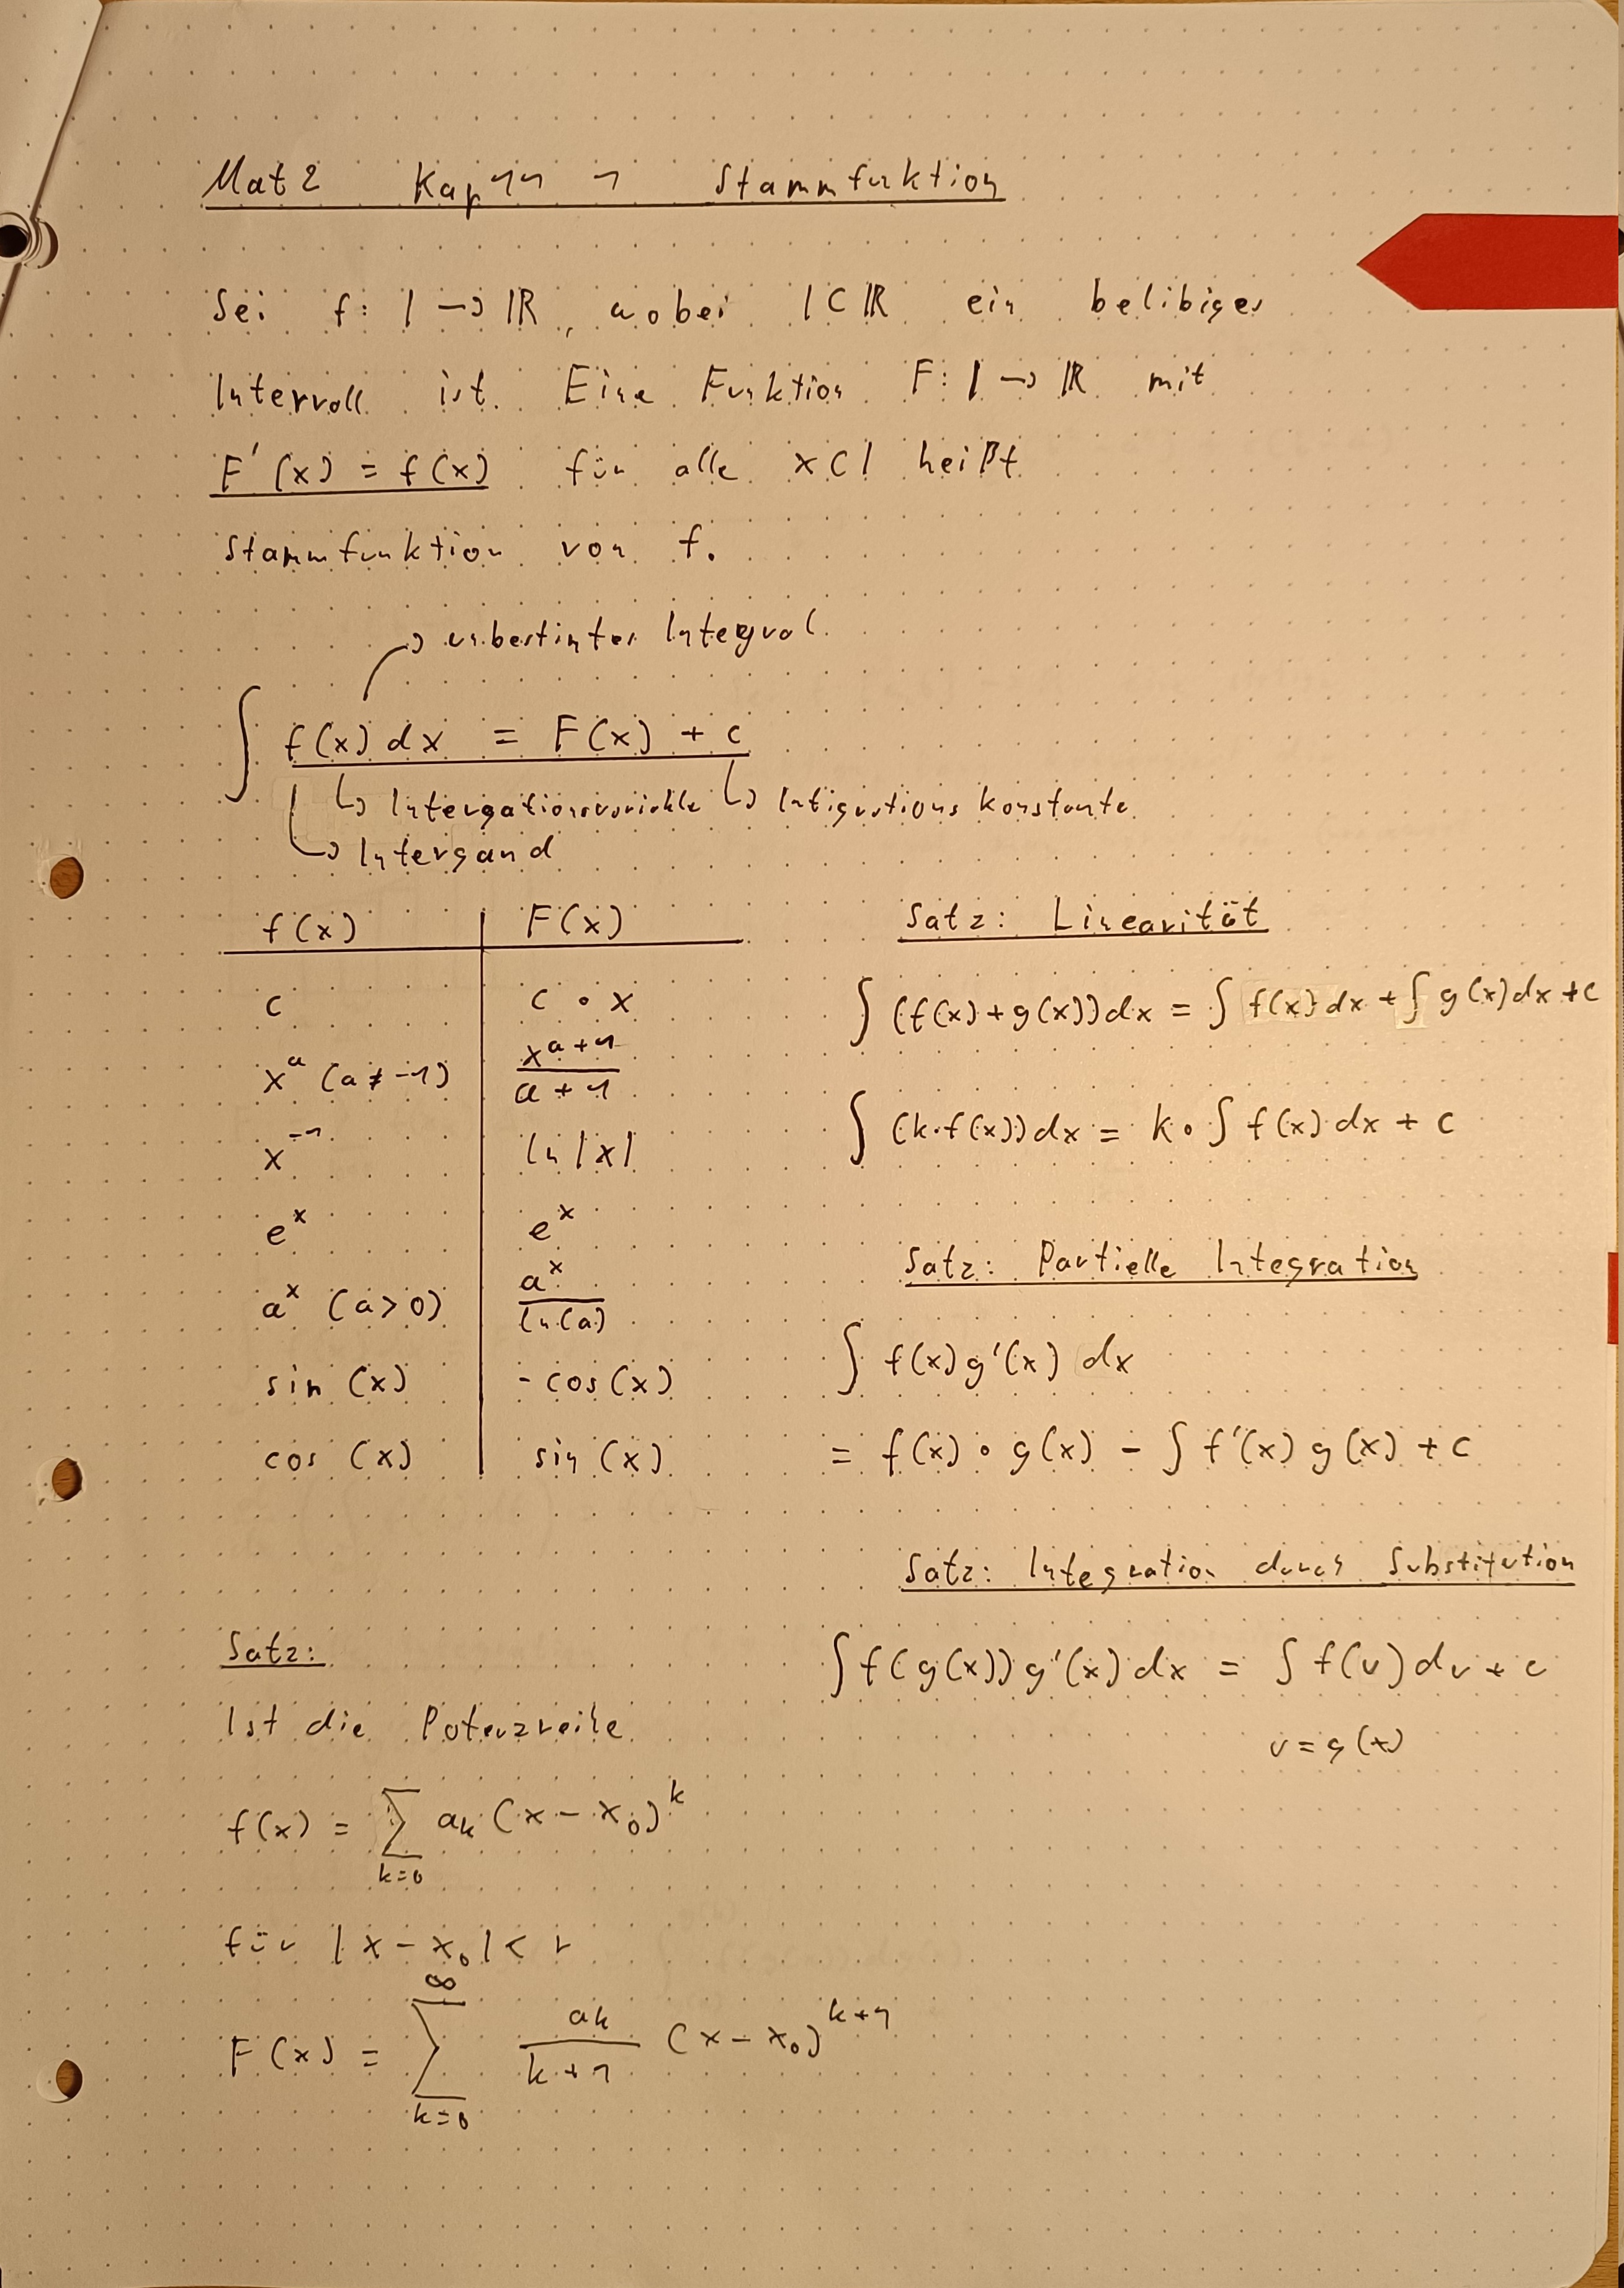 Mat2 Kap 11 1 Stammfuktion
Sei f: I → ℝ, wobei I ⊂ ℝ ein belibiges
Intervall ist. Eine Funktion F: I → ℝ mit
F'(x) = f(x) für alle x ⊂ I heißt
Stammfunktion von f.
→ unbestimtes Integral
∫ f(x) dx = F(x) + c
↳ Intergationsvariable ↳ Intigrations Konstante
↳ Intergand
f(x) | F(x)
c | c · x
x^a (a ≠ -1) | x^(a+1) / (a+1)
x^-1 | ln |x|
e^x | e^x
a^x (a > 0) | a^x / ln(a)
sin (x) | - cos(x)
cos (x) | sin (x)
Satz: Linearität
∫ (f(x) + g(x)) dx = ∫ f(x) dx + ∫ g(x) dx + c
∫ (k · f(x)) dx = k · ∫ f(x) dx + c
Satz: Partielle Integration
∫ f(x) g'(x) dx
= f(x) · g(x) - ∫ f'(x) g(x) + c
Satz: Integration durch Substitution
∫ f(g(x)) g'(x) dx = ∫ f(u) du + c
u = g(x)
Satz:
Ist die Potenzreihe
f(x) = ∑_{k=0} a_k (x - x_0)^k
für |x - x_0| < r
F(x) = ∑_{k=0}^∞ a_k / (k+1) (x - x_0)^(k+1)